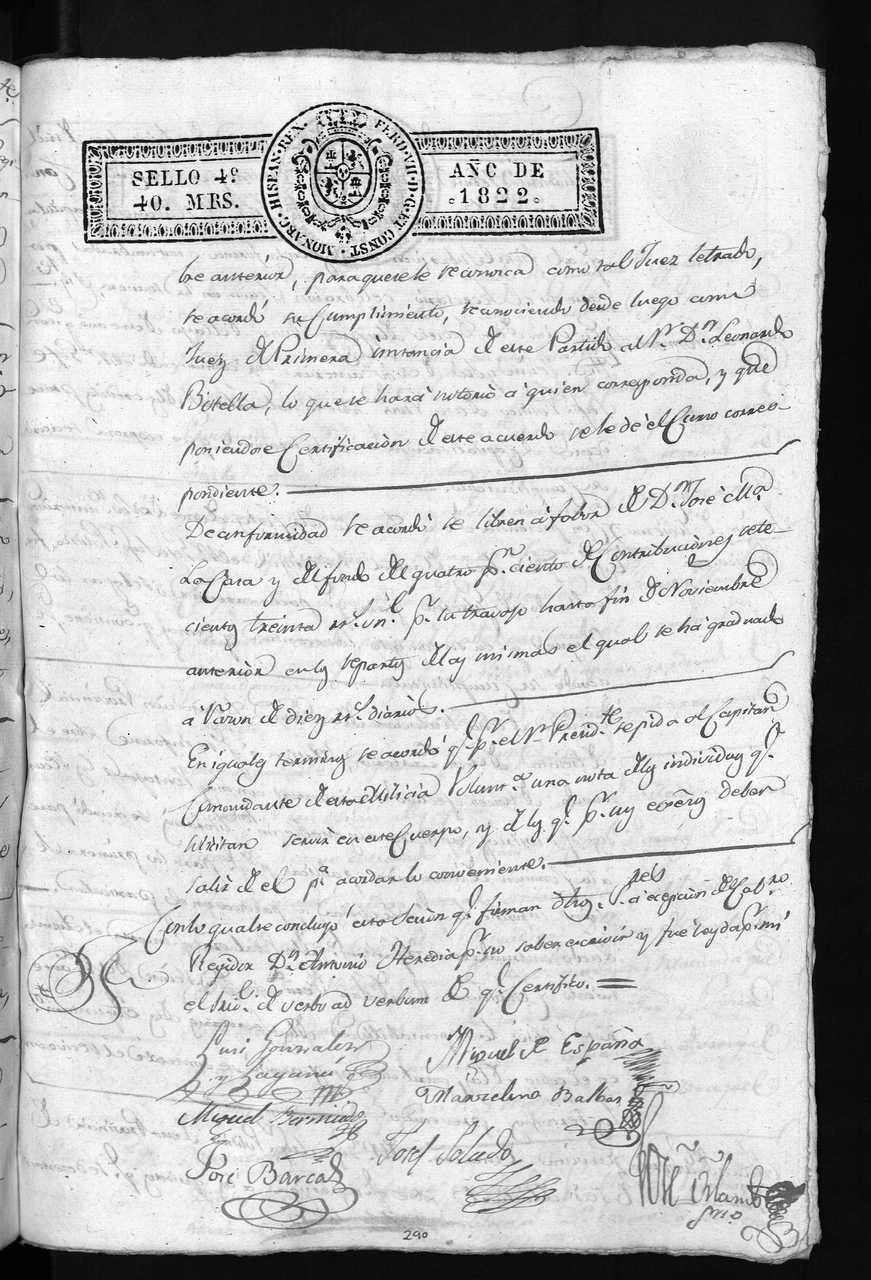 SELLO 4º
40. MRS.
HISPAN. REX. FERD. VII. D. G. ET CONST. MONARC.
AÑO DE
1822
bre anterior, para que se le reconosca como tal Juez letrado,
se acordó su Cumplimiento, reconociendo desde luego como
Juez de Primera instancia de este Partido al Sr. Dn. Leonardo
Botella, lo que se hará notorio a quien corresponda, y que
poniendose Certificacion de este acuerdo se le dé el Curso corres-
pondiente.
De conformidad se acordó se libren á fabor de Dn. José Ma.
La Casa y del fondo del quatro pr. ciento de Contribuciones sete-
cientos treinta rs. vn. pr. su travajo hasta fin de Noviembre
anterior en los repartos de las mismas el qual se há graduado
á razon de diez rs. diarios.
En iguales terminos se acordó qe. pr. el Sr. Presidte. se pida al Capitan
Comandante de esta Milicia Volunta. una nota de los individuos qe.
servir en este Cuerpo, y de los qe. pr. sus deben
salir de el pa. acordar lo conveniente.
Con lo qual se concluyó esta Sesion qe. firman dhos. Sres. á escepcion del Cabro.
Regidor Dn. Antonio Heredia pr. no saber escrivir y fue leyda pr. mi
el Srio. de verbo ad verbum de qe. Certifico.
Luis Gonzalez
Miguel de España
y Laguna
Marzelino Balboa
Miguel Bermudo
José Solado
José Barcal
srio
290